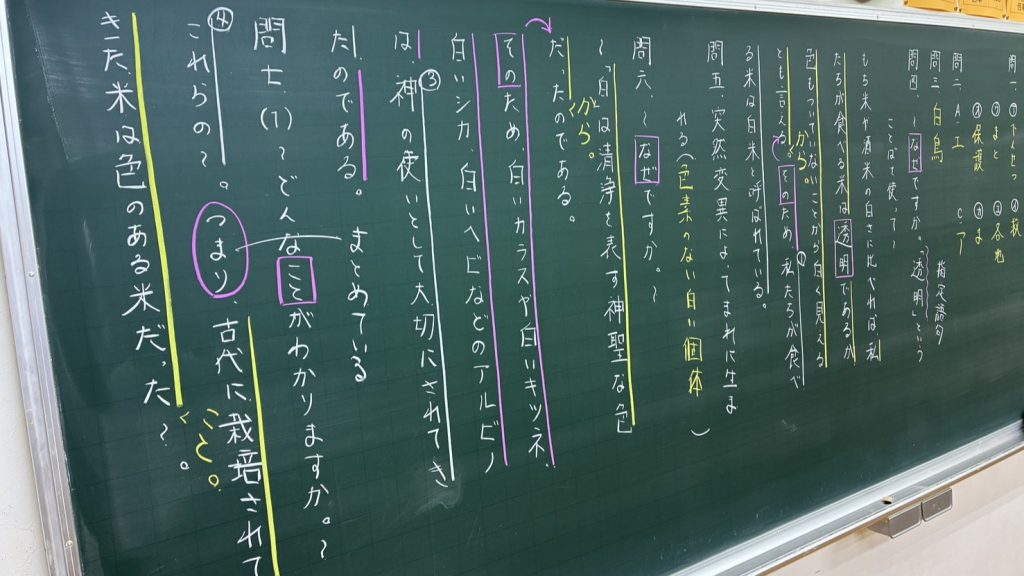 問一
問二 A エ C ア
問三 白鳥
問四、〜なぜですか。「透明」という
指定語句
ことばを使って〜
もち米や酒米の白さに比べれば、私
たちが食べる米は透明であるが
色もついていないことから白く見える
とも言える。そのため、私たちが食べ
から。
る米は白米と呼ばれている。
問五、突然変異によってまれに生ま
れる(色素のない白い個体)
問六、〜なぜですか。〜
〜「白は清浄を表す神聖な色
だったのである。
から。
そのため、白いカラスや白いキツネ、
白いシカ、白いヘビなどのアルビノ
は、神の使いとして大切にされてき
③
たのである。
まとめている
問七、(1)〜どんなことがわかりますか。〜
⑭
これらの〜。つまり、古代に栽培されて
きた米は色のある米だった〜。
こと。